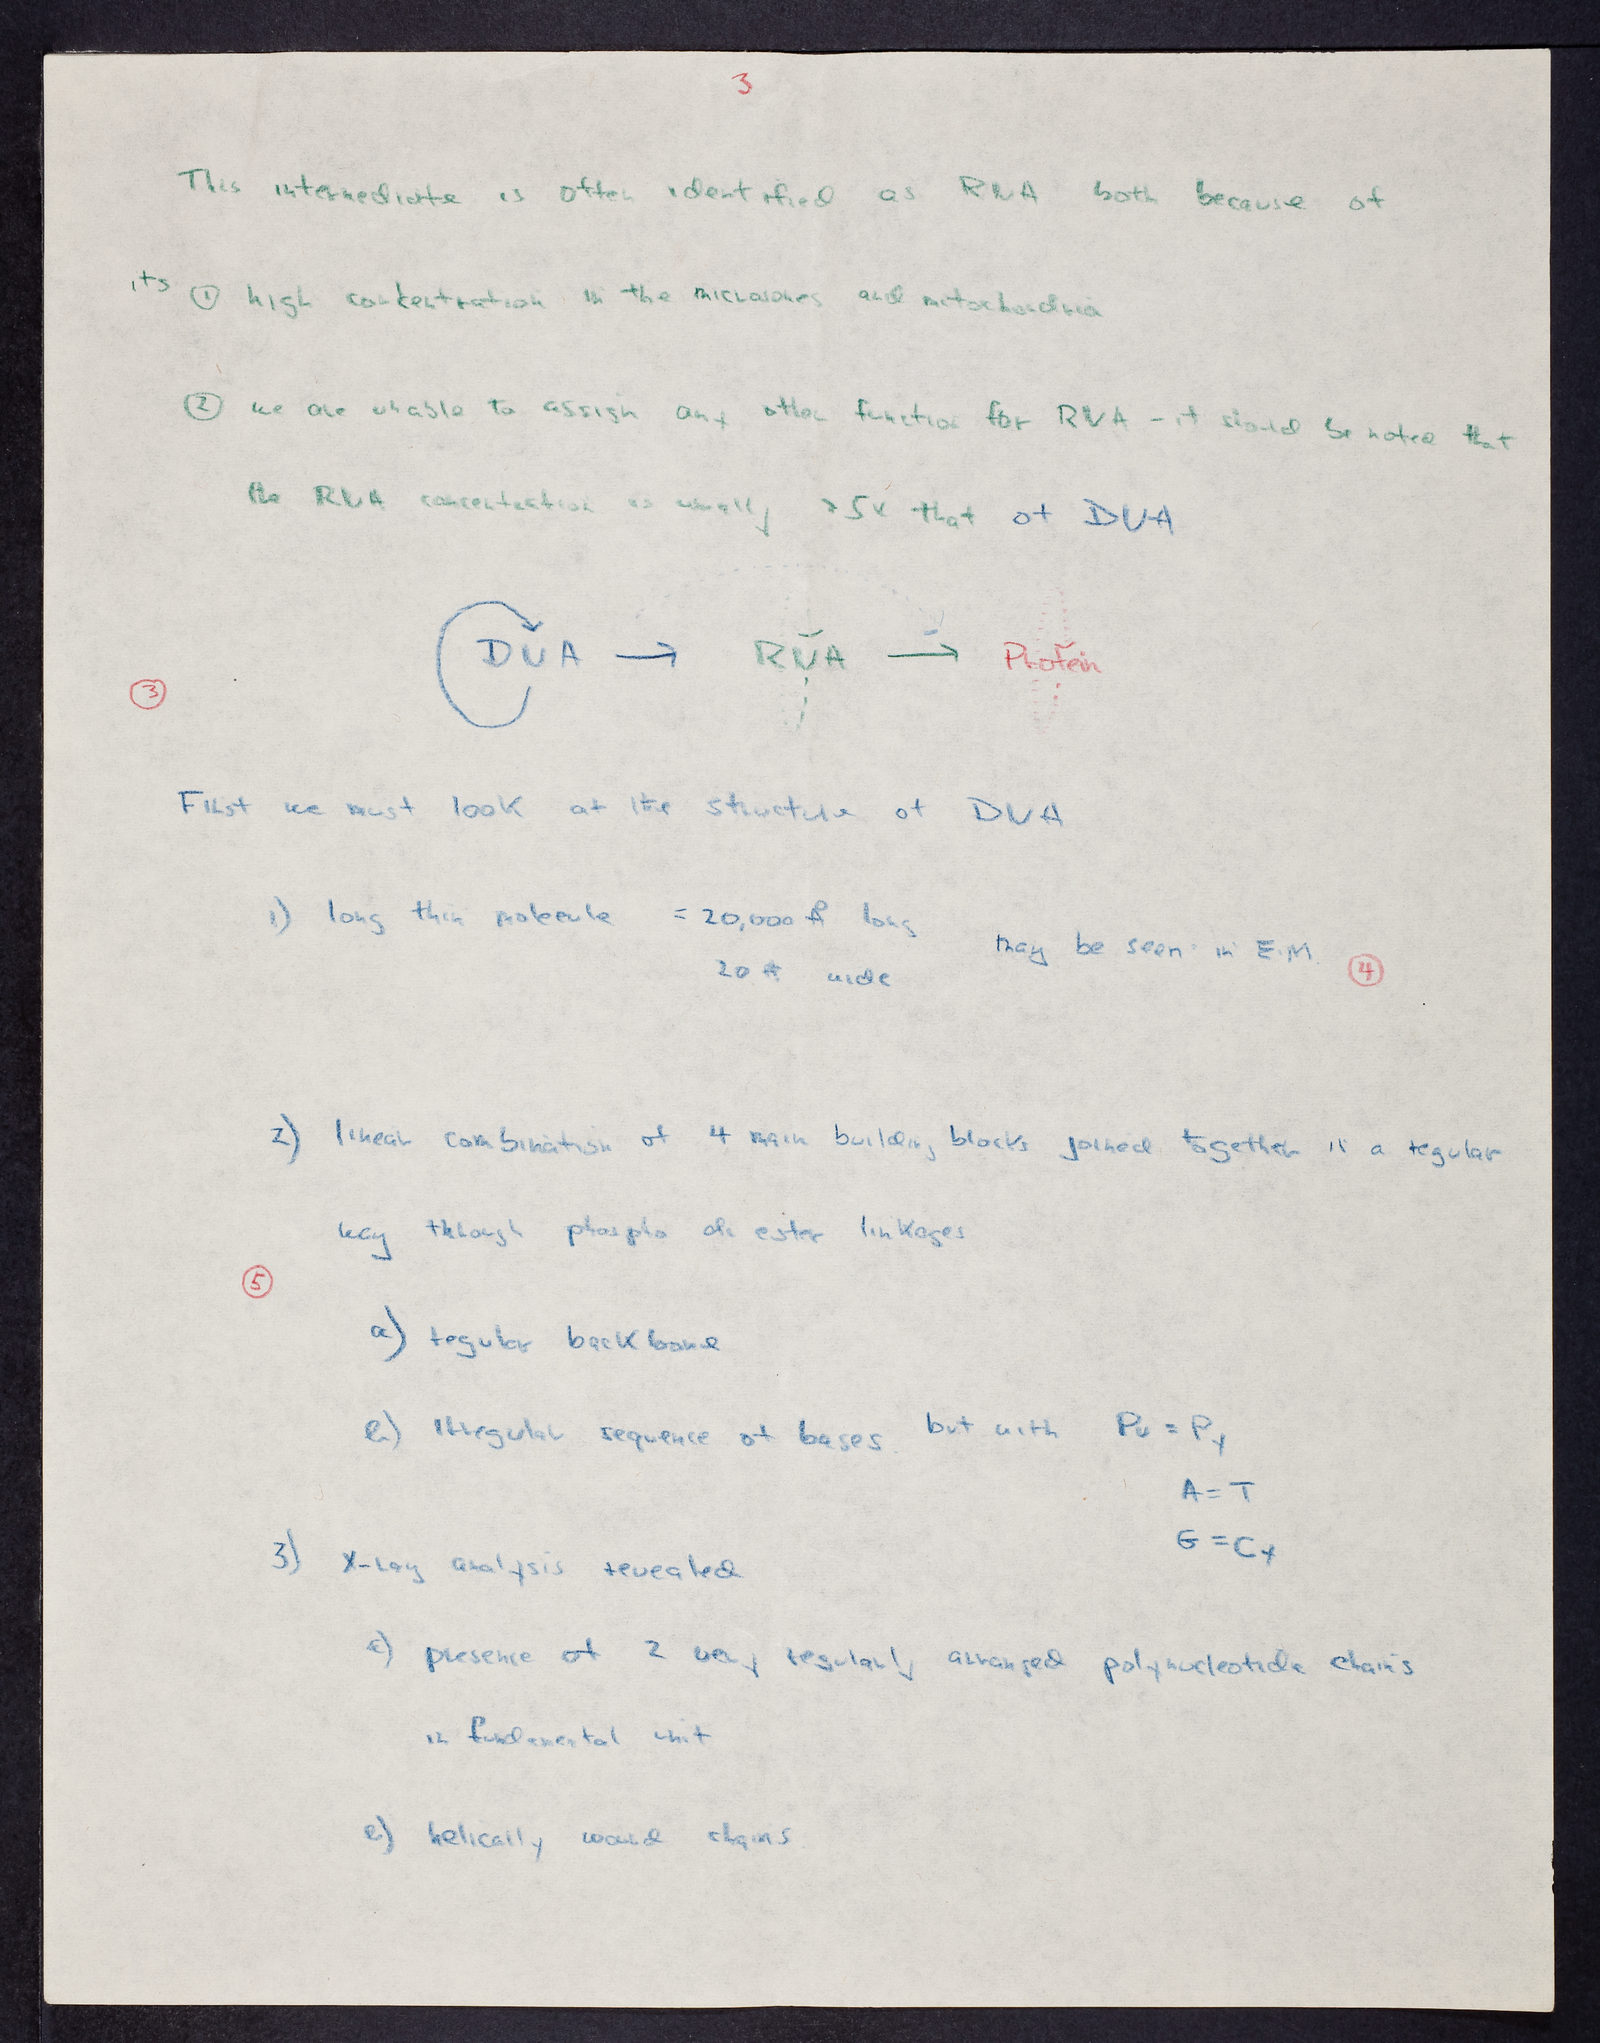 3
This intermediate is often identified as RNA both because of
its ① high concentration in the microsomes and mitochondria
② we are unable to assign any other function for RNA - it should be noted that
the RNA concentration is usually >5x that of DNA
DNA → RNA → Protein
③
First we must look at the structure of DNA
1) long thin molecule = 20,000 Å long
may be seen in E.M. ④
20 Å wide
2) linear combination of 4 main building blocks joined together in a regular
way through phospho di ester linkages
⑤
a) regular backbone
b) irregular sequence of bases but with Pu = Py
A = T
G = Cy
3) X-ray analysis revealed
a) presence of 2 very regularly arranged polynucleotide chains
in fundamental unit
b) helically wound chains